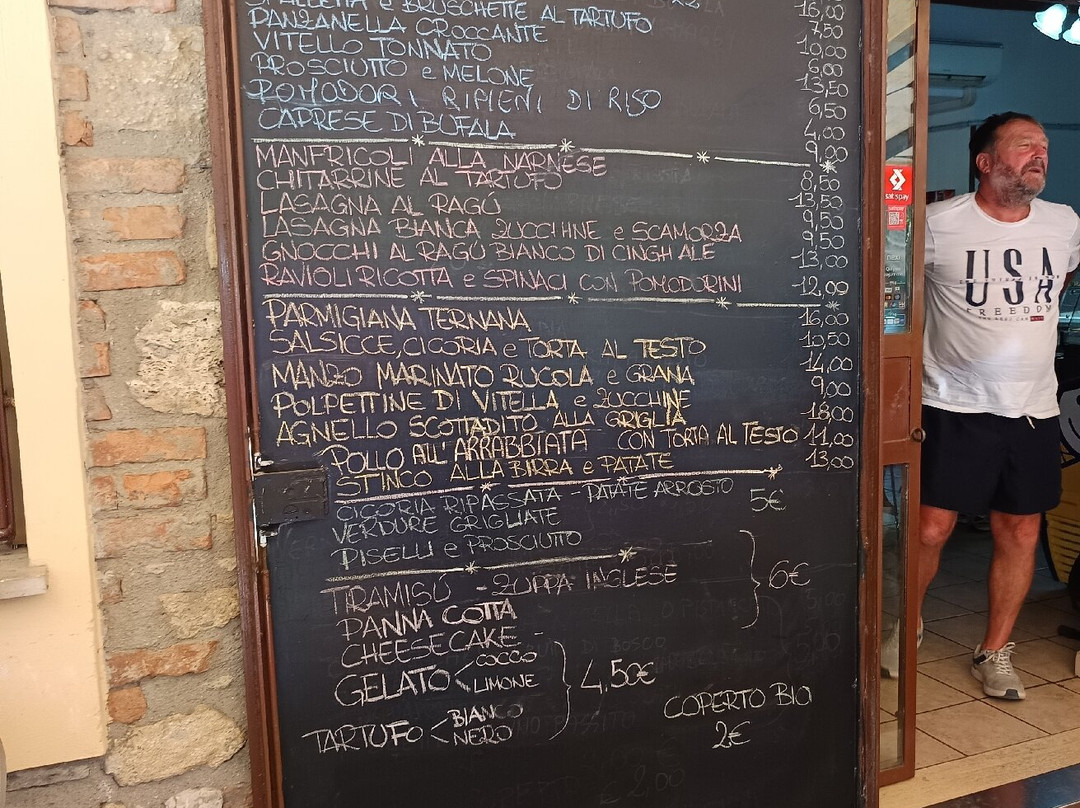 16,00
7,50
SPALLETTA e BRUSCHETTE AL TARTUFO 10,00
PANZANELLA CROCCANTE 6,00
VITELLO TONNATO 13,50
PROSCIUTTO e MELONE 6,50
POMODORI RIPIENI DI RISO 4,00
CAPRESE DI BUFALA 9,00
MANFRICOLI ALLA NARNESE 8,50
CHITARRINE AL TARTUFO 13,50
LASAGNA AL RAGÚ 9,50
LASAGNA BIANCA ZUCCHINE e SCAMORZA 9,50
GNOCCHI AL RAGÚ BIANCO DI CINGHIALE 13,00
RAVIOLI RICOTTA e SPINACI CON POMODORINI 12,00
PARMIGIANA TERNANA 16,00
SALSICCE, CICORIA e TORTA AL TESTO 10,50
MANZO MARINATO RUCOLA e GRANA 14,00
POLPETTINE DI VITELLA e ZUCCHINE 9,00
AGNELLO SCOTTADITO ALLA GRIGLIA 18,00
POLLO ALL'ARRABBIATA CON TORTA AL TESTO 11,00
STINCO ALLA BIRRA e PATATE 13,00
CICORIA RIPASSATA - PATATE ARROSTO 5€
VERDURE GRIGLIATE
PISELLI e PROSCIUTTO
TIRAMISÚ - ZUPPA INGLESE 6€
PANNA COTTA
CHEESECAKE -
GELATO < COCCO
LIMONE 4,50€
TARTUFO < BIANCO
NERO
COPERTO BIO
2€
satispay
USA
FREEDDY